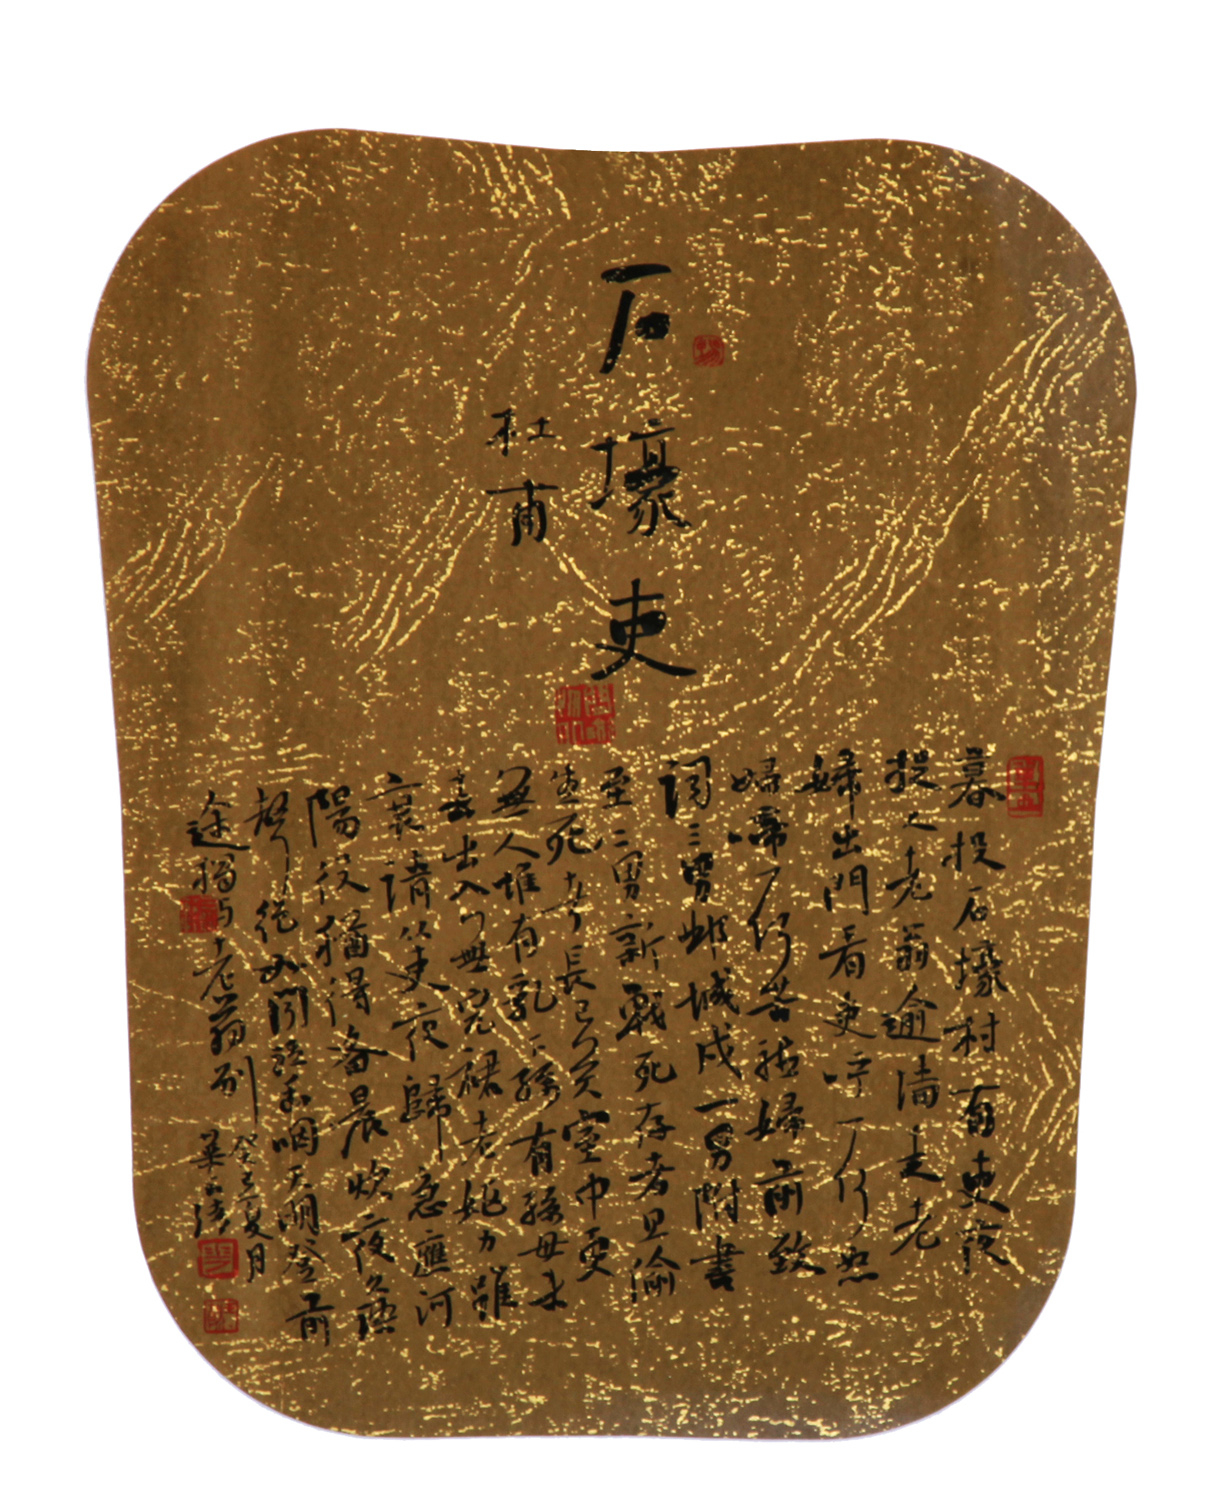 石壕吏
杜甫
暮投石壕村有吏夜
捉人老翁逾墻走老
婦出門看吏呼一何怒
婦啼一何苦聽婦前致
詞三男鄴城戍一男附書
至二男新戰死存者且偷
生死者長已矣室中更
無人惟有乳下孫有孫母未
去出入無完裙老嫗力雖
衰請從吏夜歸急應河
陽役猶得備晨炊夜久語
聲絕如聞泣幽咽天明登前
途獨与老翁別
癸巳夏月